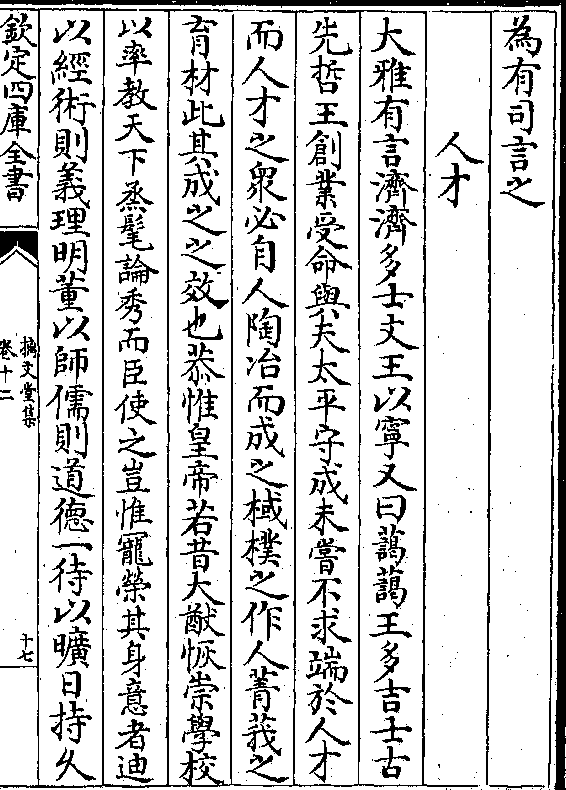 為有司言之
人才
大雅有言濟濟多士文王以寧又曰藹藹王多吉士古
先哲王創業受命與夫太平守成未嘗不求端於人才
而人才之衆必自人陶冶而成之棫樸之作人菁莪之
育材此其成之之效也恭惟皇帝若昔大猷恢崇學校
以率教天下烝髦論秀而臣使之豈惟寵榮其身意者迪
以經術則義理明董以師儒則道德一待以曠日持久
欽定四庫全書
摛文堂集
卷十二
十七